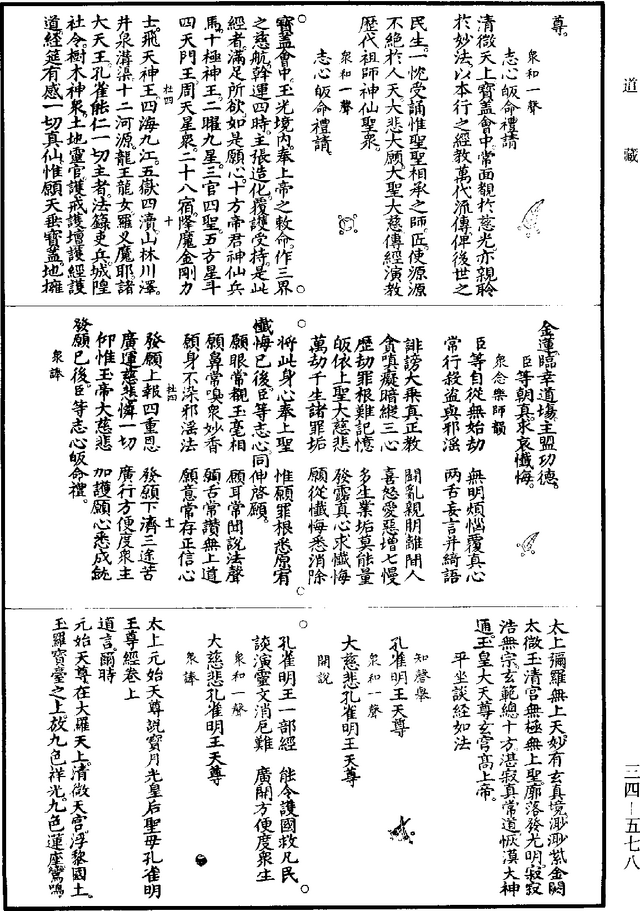 道藏
尊。
衆和一聲
志心皈命禮請
清微天上寶蓋會中。常面覩於慈光。亦親聆
於妙法。以本行之經教。萬代流傳。俾後世之
民生。一忱受誦。惟聖聖相承之師匠。使源源
不絕於人天。大悲大願。大聖大慈。傳經演教
歷代祖師神仙聖衆。
衆和一聲
志心皈命禮請。
寶蓋會中。玉光境內。奉上帝之敕命。作三界
之慈航。幹運四時。主張造化。覆護受持。是此
經者。滿足所欲。如是願心。十方帝君神仙兵
馬。十極神王。二曜九星。三官四聖。五方星斗
四天門王。周天星衆。二十八宿。降魔金剛力
杜四 十
士。飛天神王。四海九江。五嶽四瀆。山林川澤。
井泉溝渠。十二河源。龍王龍女。羅义魔耶。諸
大天王。孔雀能仁。一切主者。法籙吏兵。城隍
社令。樹木神衆。土地靈官。護戒護壇。護經護
道。經筵有感。一切真仙。惟願天垂寶蓋。地擁
金蓮。臨幸道場。主盟功德。
臣等朝真求哀懺悔。
衆念樂師韻
臣等自從無始劫 無明煩惱覆真心
常行殺盜與邪淫 兩舌妄言并綺語
誹謗大乘真正教 閗亂親朋離間人
貪嗔癡暗縱三心 喜怒愛惡增七慢
歷劫罪根難記憶 多生業垢莫能量
皈依上聖大慈悲 發露真心求懺悔
萬劫千生諸罪垢 願從懺悔悉消除
將此身心奉上聖 惟願罪根悉原宥
懺悔已後。臣等志心同伸啓願。
願眼常覩玉毫相 願耳常聞說法聲
願鼻常嗅衆妙香 願舌常讚無上道
願身不染邪淫法 願意常存正信心
杜四 十一
發願上報四重恩 發願下濟三途苦
廣運慈悲憐一切 廣行方便度衆生
仰惟玉帝大慈悲 加護願心悉成就
發願已後。臣等志心皈命禮。
衆諷
太上彌羅無上天。妙有玄真境。渺渺紫金闕
太微玉清宫。無極無上聖。廓落發光明。寂寂
浩無宗。玄範總十方。湛寂真常道。恢漠大神
通。玉皇大天尊。玄穹高上帝。
平坐談經如法
知磬舉
孔雀明王天尊
衆和一聲
大慈悲孔雀明王天尊
開說
孔雀明王一部經 能令護國救凡民
談演靈文消厄難 廣開方便度衆生
衆和一聲
大慈悲孔雀明王天尊
衆諷
太上元始天尊說寶月光皇后聖母孔雀明
王尊經卷上
道言。爾時
元始天尊在大羅天上。清微天宫。浮黎國土。
玉羅寶臺之上。放九色祥光。九色蓮座。鸞鳴
三四—五七八